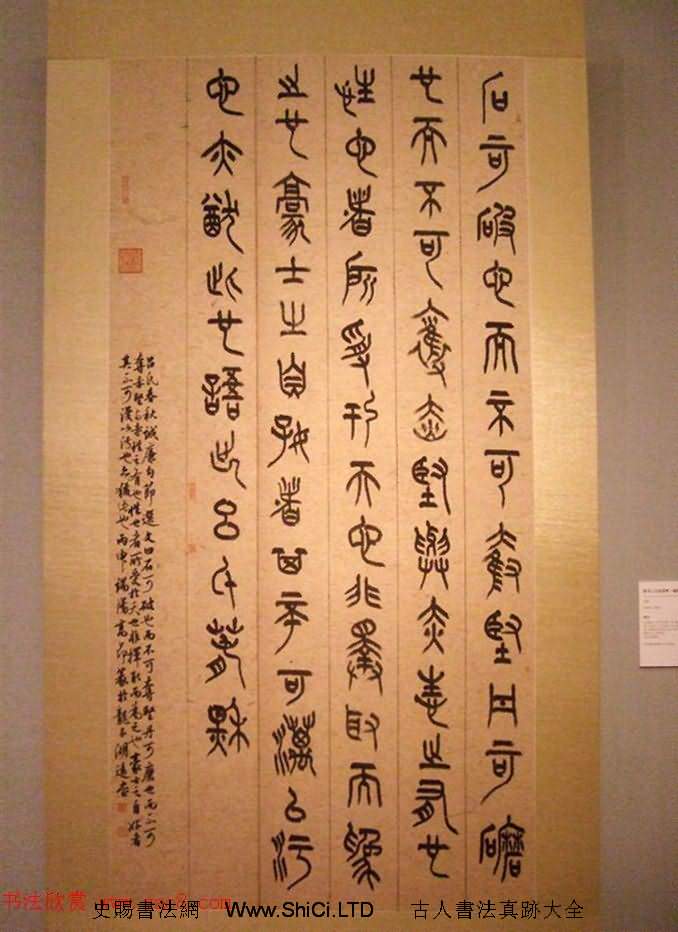 石可破也而不可奪堅丹可磨
也而不可奪赤堅與赤性之有也
性也者所受于天也非擇取而為
之也豪士之自好者其不可漫以汙
也亦猶此也語出呂氏春秋
呂氏春秋誠廉句節選文曰石可破也而不可奪堅丹可磨也而不可
奪赤堅與赤性之有也性也者所受於天也非擇取而為之也豪士之自好者
其不可漫以汙也亦猶此也丙申端陽
书法欣赏
史賜書法網 Www.ShiCi.LTD 古人書法真跡大全